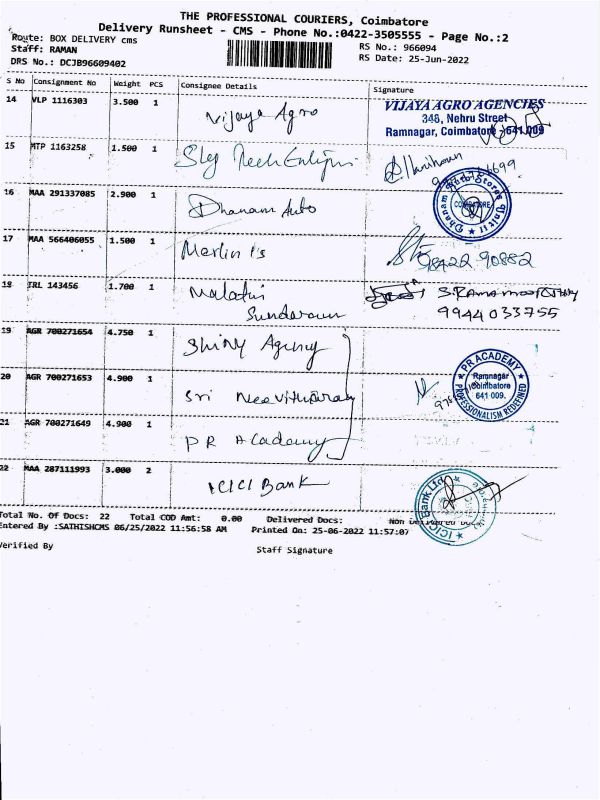 THE PROFESSIONAL COURIERS, Coimbatore
Delivery Runsheet - CMS - Phone No.:0422-3505555 - Page No.:2
Route: BOX DELIVERY cms
Staff: RAMAN
DRS No.: DCJB96609402
RS No.: 966094
RS Date: 25-Jun-2022
S No Consignment No Weight PCS Consignee Details Signature
14 VLP 1116303 3.500 1 Vijaya Agro
VIJAYA AGRO AGENCIES
348, Nehru Street
Ramnagar, Coimbatore - 641 009
15 MTP 1163258 1.500 1
16 MAA 291337085 2.900 1 Dhanam Auto
Dhanam Auto Stores
COIMBATORE
17 MAA 566406055 1.500 1 Merlin I's
98422 90882
18 IRL 143456 1.700 1 Malathi
Sundaram
S.RAMAMOORTHY
9944033755
19 AGR 700271654 4.750 1 Shiny Agency
20 AGR 700271653 4.900 1 Sri
PR ACADEMY
Ramnagar
Coimbatore
641 009.
PROFESSIONALISM REDEFINED
21 AGR 700271649 4.900 1 PR Academy
22 MAA 287111993 3.000 2 ICICI Bank
ICICI Bank Ltd
Total No. Of Docs: 22 Total COD Amt: 0.00 Delivered Docs: Non Delivered
Entered By :SATHISHCMS 06/25/2022 11:56:58 AM Printed On: 25-06-2022 11:57:07
Verified By
Staff Signature